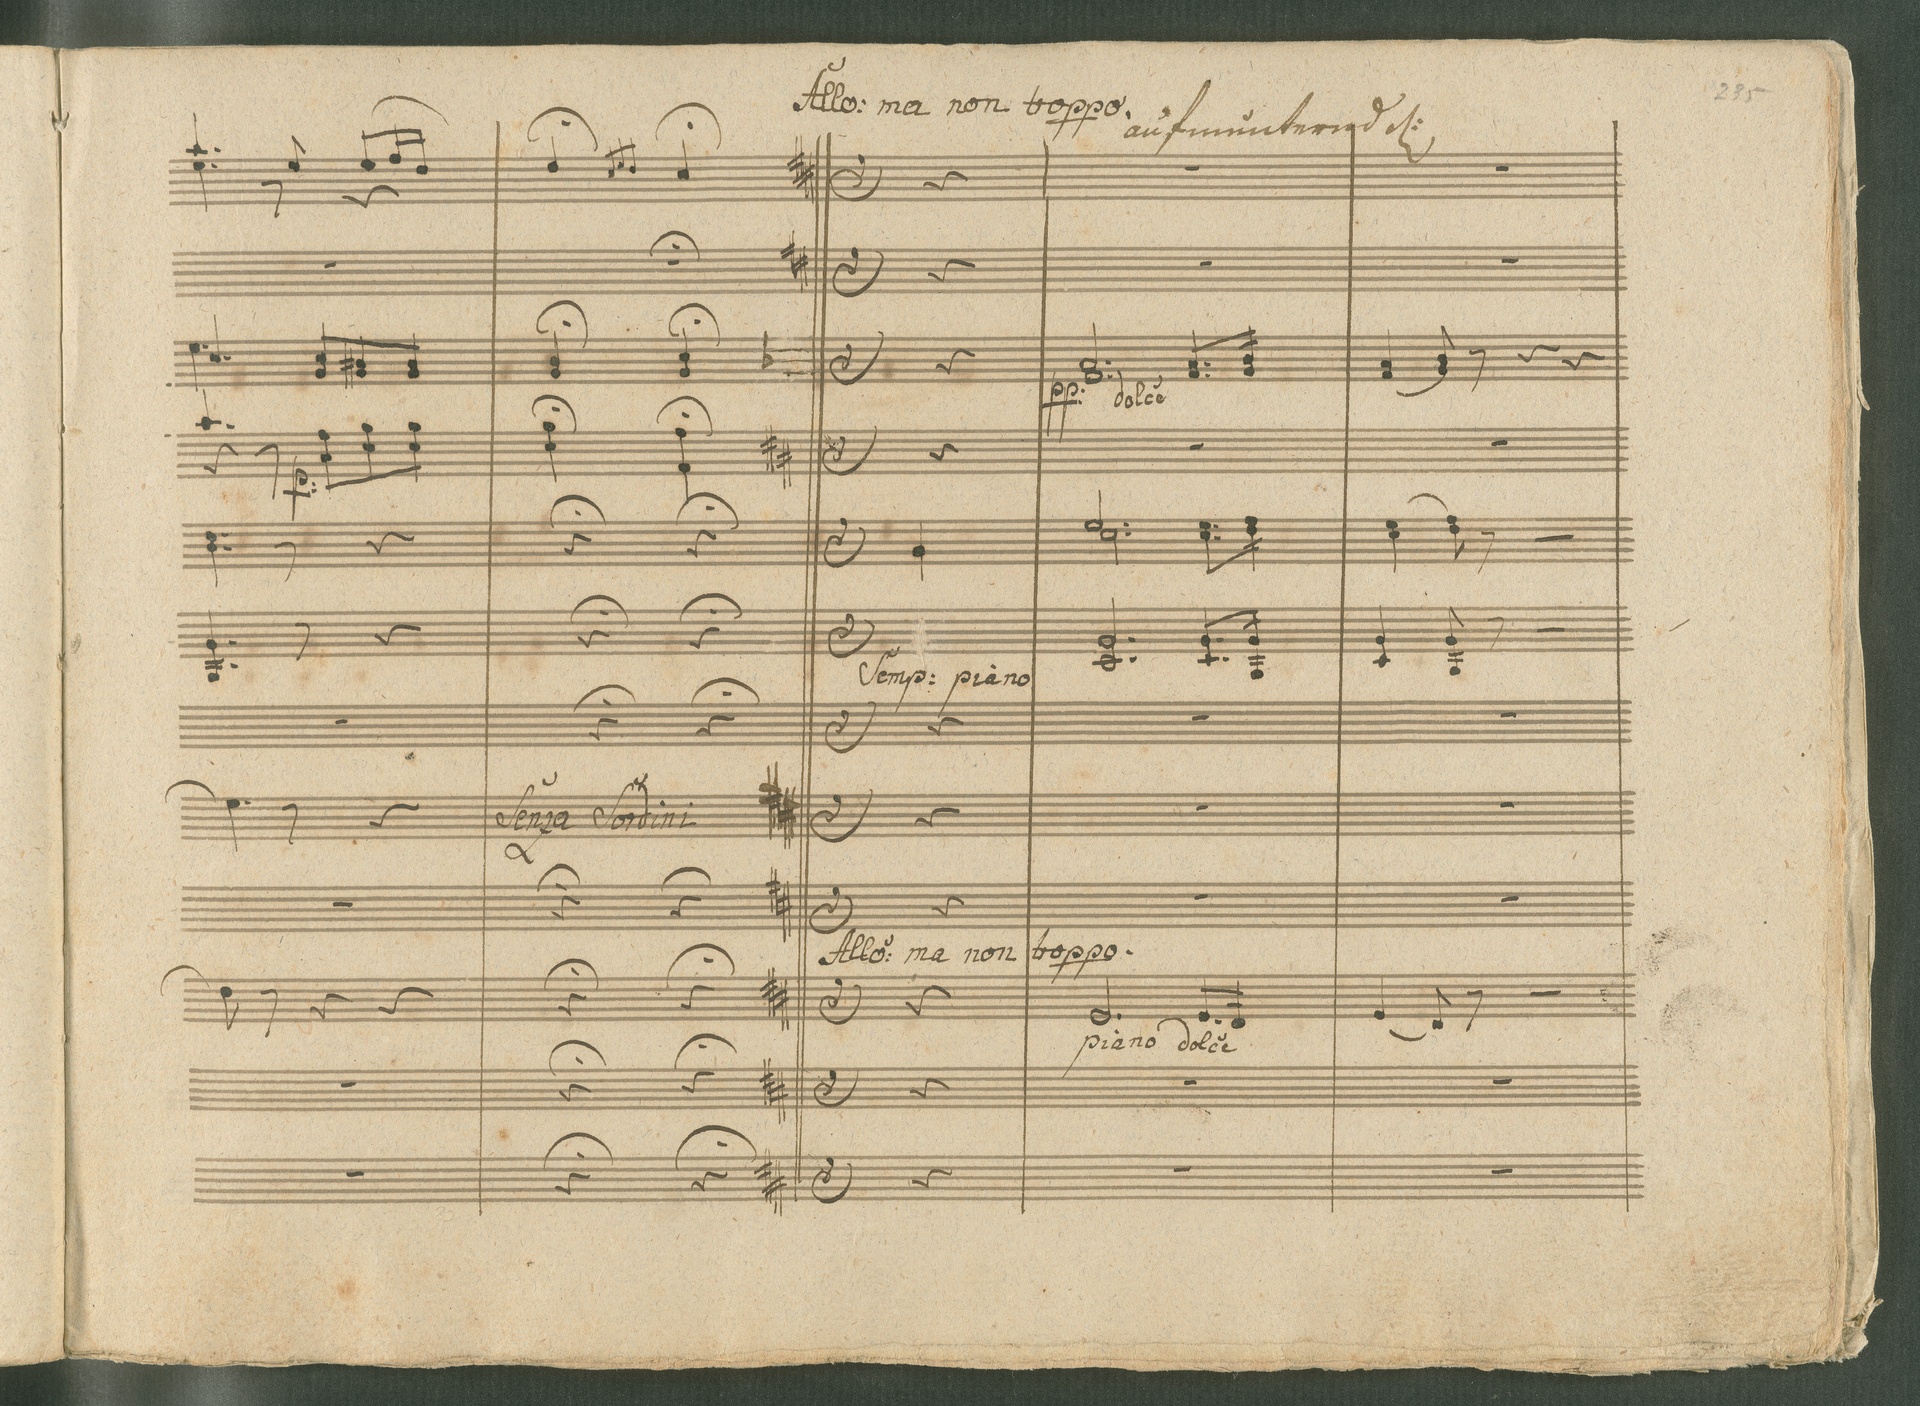 235
Allo: ma non troppo.
aufmunternd
pp: dolce
p:
Semp: piano
Senza Sordini
Allo: ma non troppo.
piano dolce